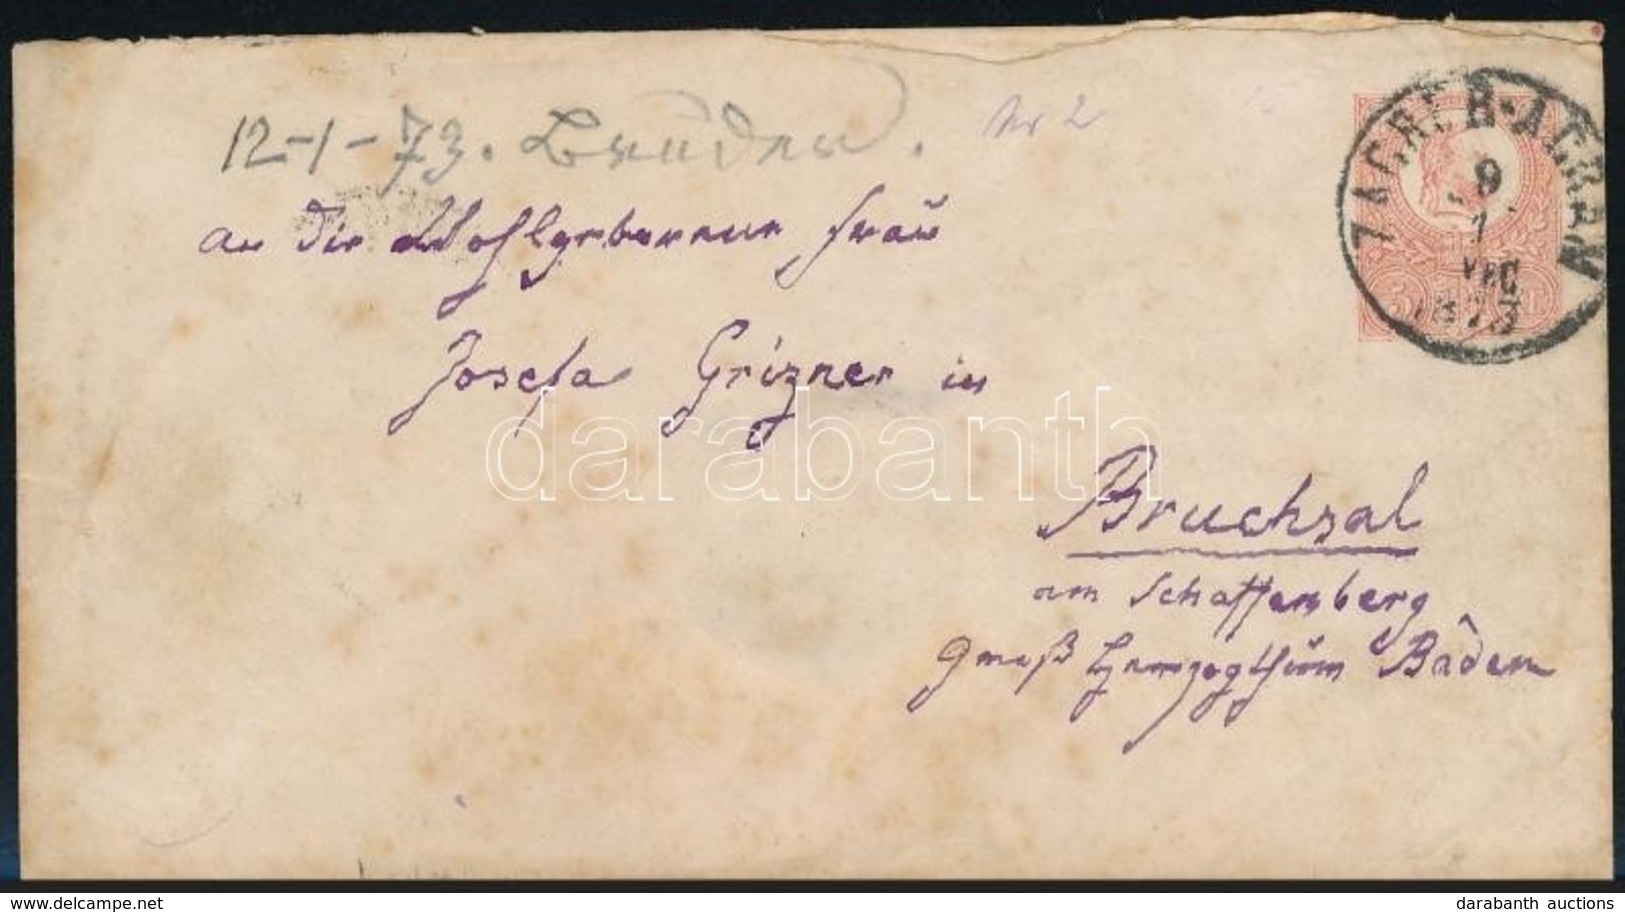 12-1-73. Bruder.
Nr 2
ZAGREB-AGRAM
9
1
1873
An die Wohlgeborene Frau
Josefa Grizner in
darabanth
Bruchsal
am Schaffenberg
Groß Herzogthum Baden
www.delcampe.net
darabanth auctions